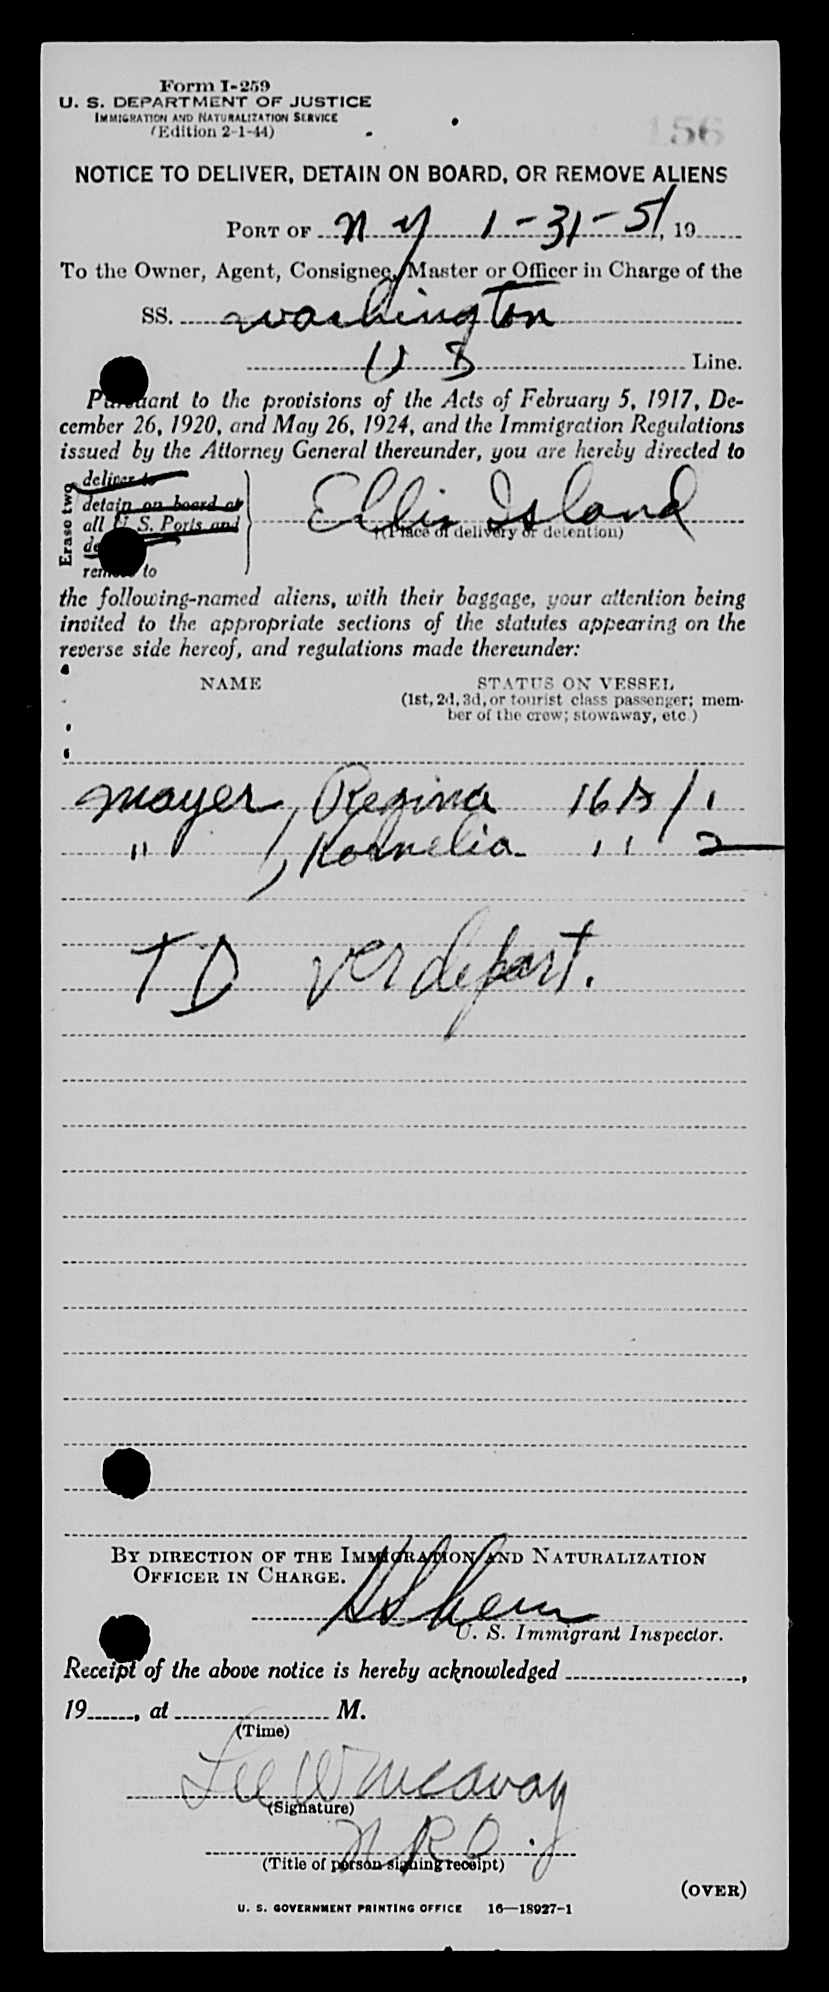 Form I-259
U. S. DEPARTMENT OF JUSTICE
IMMIGRATION AND NATURALIZATION SERVICE
(Edition 2-1-44)
156
NOTICE TO DELIVER, DETAIN ON BOARD, OR REMOVE ALIENS
PORT OF N Y 1-31-51, 19
To the Owner, Agent, Consignee, Master or Officer in Charge of the
SS. Washington
U S Line.
Pursuant to the provisions of the Acts of February 5, 1917, De-
cember 26, 1920, and May 26, 1924, and the Immigration Regulations
issued by the Attorney General thereunder, you are hereby directed to
Erase two
deliver to
detain on board at
all U. S. Ports and
remove to
Ellis Island
(Place of delivery or detention)
the following-named aliens, with their baggage, your attention being
invited to the appropriate sections of the statutes appearing on the
reverse side hereof, and regulations made thereunder:
NAME STATUS ON VESSEL
(1st, 2d, 3d, or tourist class passenger; mem-
ber of the crew; stowaway, etc.)
Mayer, Regina 16 / 1
" , Kornelia " 2
TD ver depart.
BY DIRECTION OF THE IMMIGRATION AND NATURALIZATION
OFFICER IN CHARGE.
U. S. Immigrant Inspector.
Receipt of the above notice is hereby acknowledged ,
19 , at M.
(Time)
Lee
(Signature)
(Title of person signing receipt)
(OVER)
U. S. GOVERNMENT PRINTING OFFICE 16—18927-1